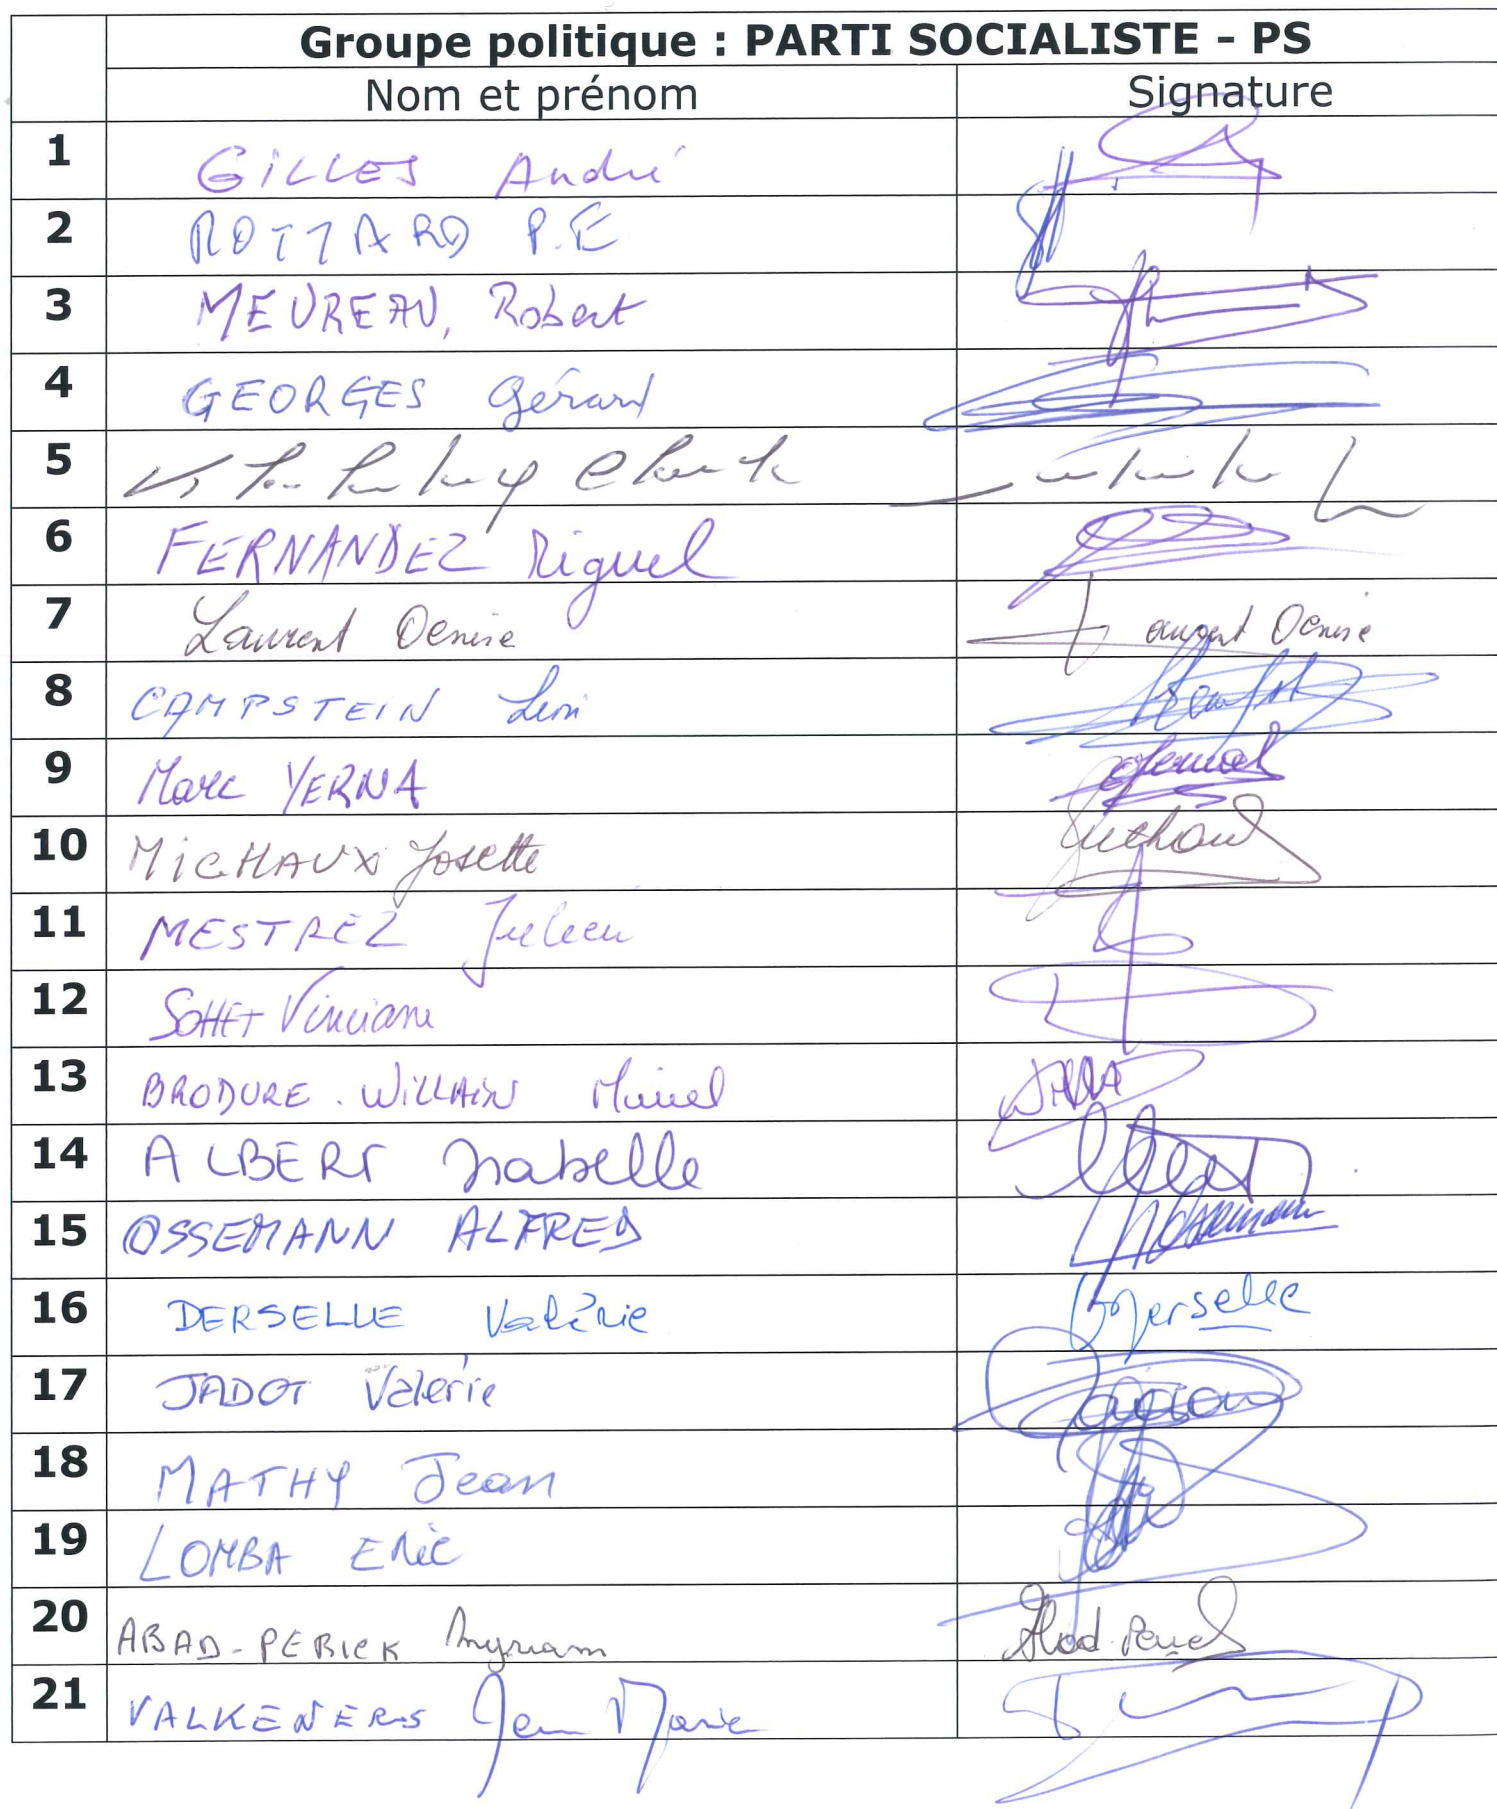 Groupe politique : PARTI SOCIALISTE - PS
Nom et prénom Signature
1 GILLES André
2 ROTTARD P.E
3 MEUREAU, Robert
4 GEORGES Gérard
5
6 FERNANDEZ Miguel
7 Laurent Denise Laurent Denise
8 CAMPSTEIN Léon
9 Marc YERNA
10 MICHAUX Josette
11 MESTREZ Julien
12 SOHET Vinciane
13 BRODURE-WILLAIN Muriel
14 ALBERT Isabelle
15 OSSEMANN ALFRED
16 DERSELLE Valérie Derselle
17 JADOT Valérie
18 MATHY Jean
19 LOMBA Eric
20 ABAD-PERICK Myriam
21 VALKENERS Jean Marie